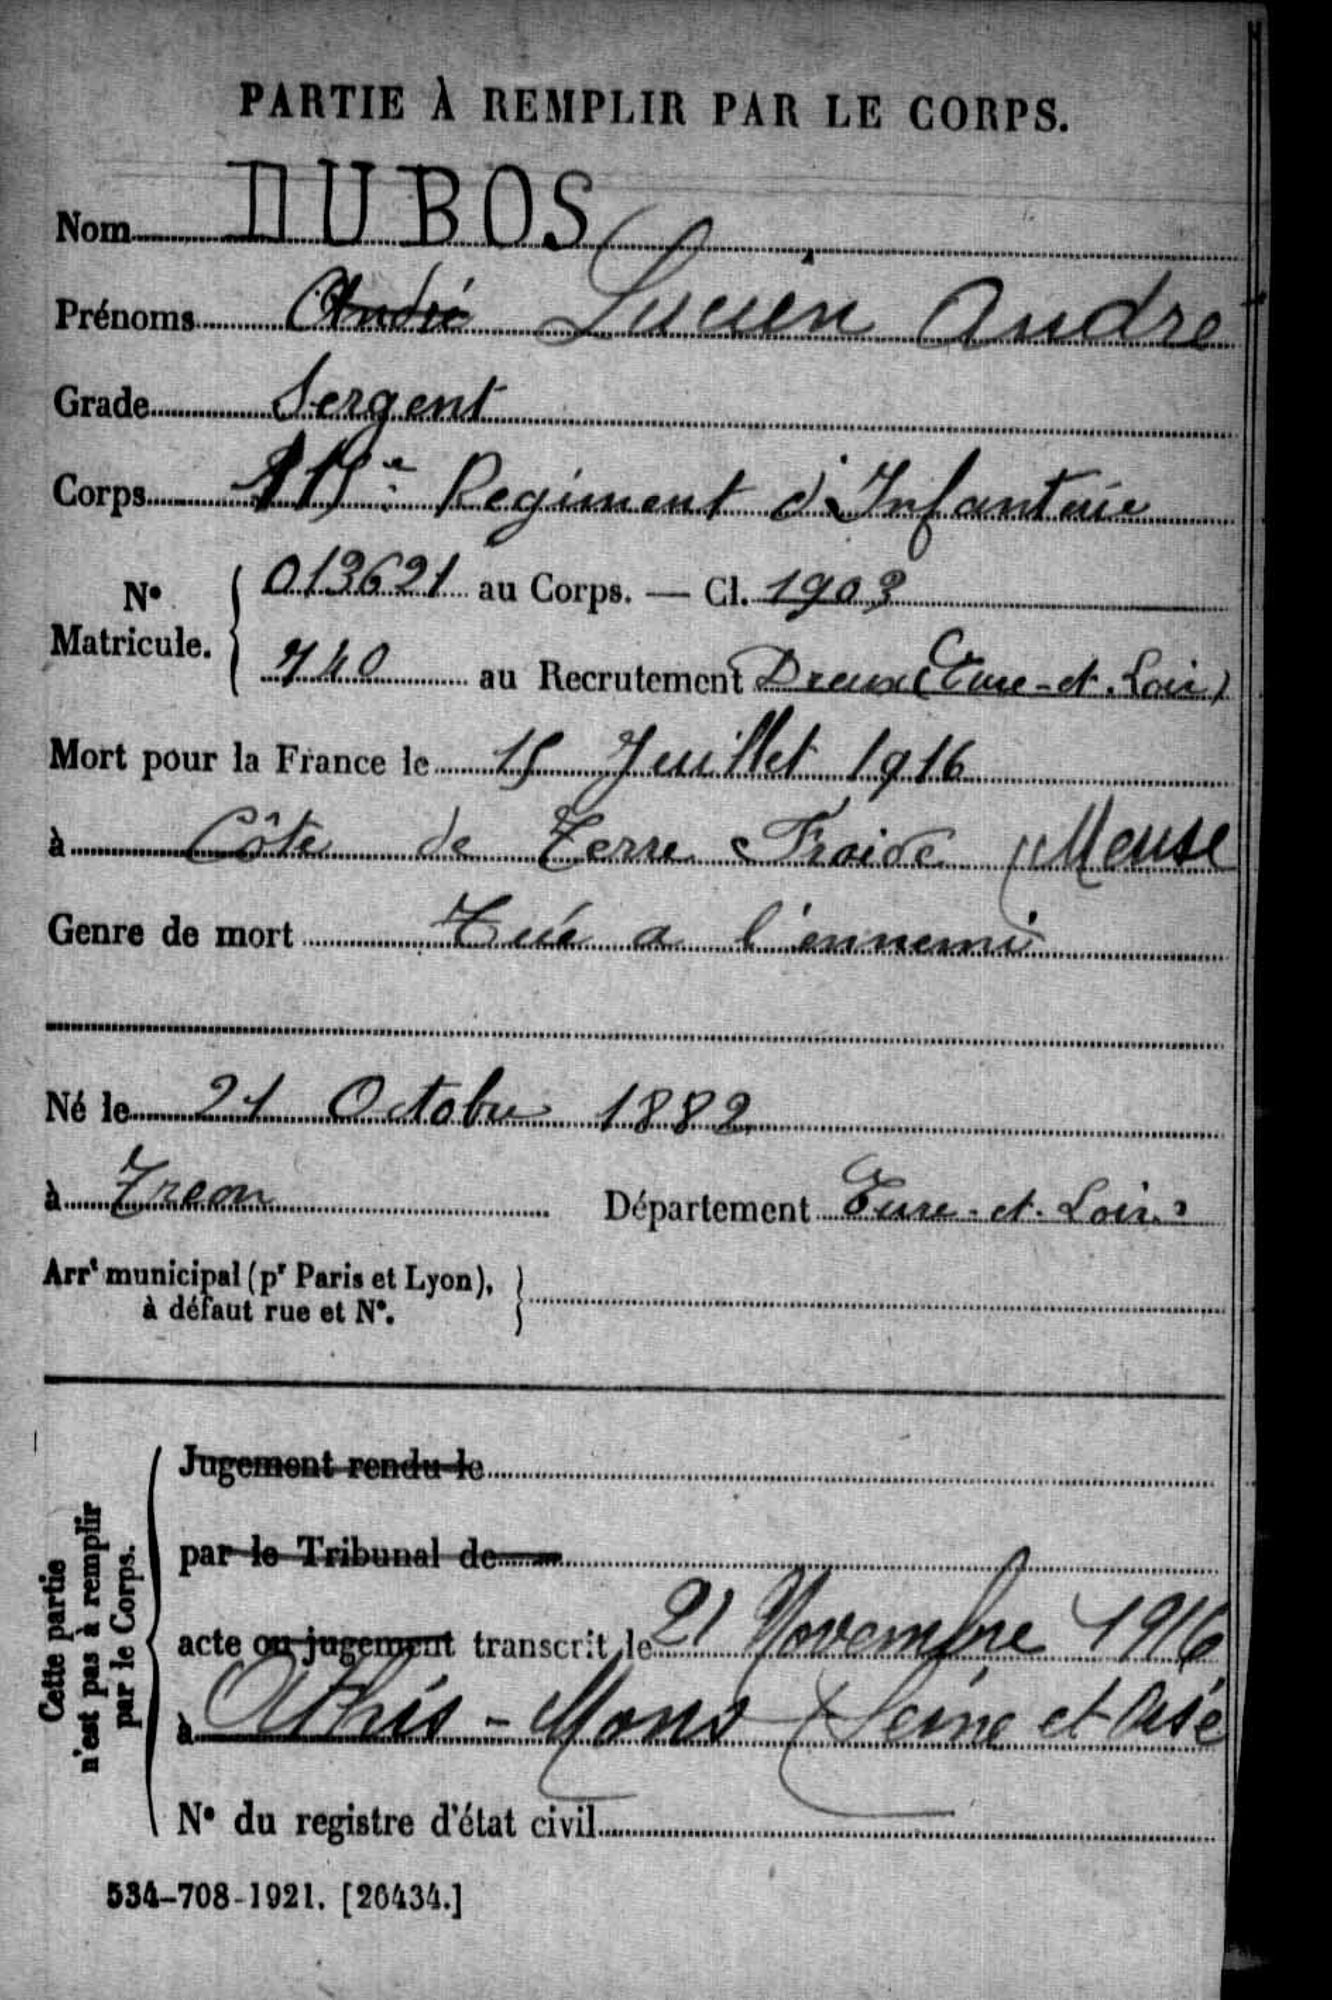 PARTIE À REMPLIR PAR LE CORPS.
Nom DUBOS
Prénoms André Lucien André
Grade Sergent
Corps Regiment d'Infanterie
N° Matricule. 013621 au Corps. — Cl. 1903
740 au Recrutement Dreux (Eure-et-Loir)
Mort pour la France le 15 Juillet 1916
à Côte de Terre Froide (Meuse
Genre de mort Tué a l'ennemi
Né le 21 Octobre 1882
à Treon Département Eure-et-Loir
Arrt municipal (pr Paris et Lyon),
à défaut rue et N°.
Cette partie
n'est pas à remplir
par le Corps.
Jugement rendu le
par le Tribunal de
acte ou jugement transcrit le 21 Novembre 1916
à Athis-Mons (Seine et Oise
N° du registre d'état civil
534-708-1921. [26434.]